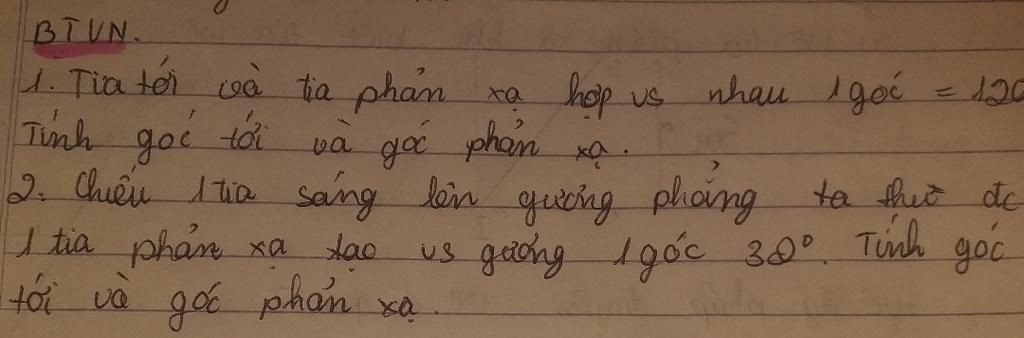 BTVN.
1. Tia tới và tia phản xạ hợp vs nhau 1 góc = 120
Tính góc tới và góc phản xạ.
2. Chiếu 1 tia sáng lên gương phẳng ta thu đc
1 tia phản xạ tạo vs gương 1 góc 30°. Tính góc
tới và góc phản xạ.